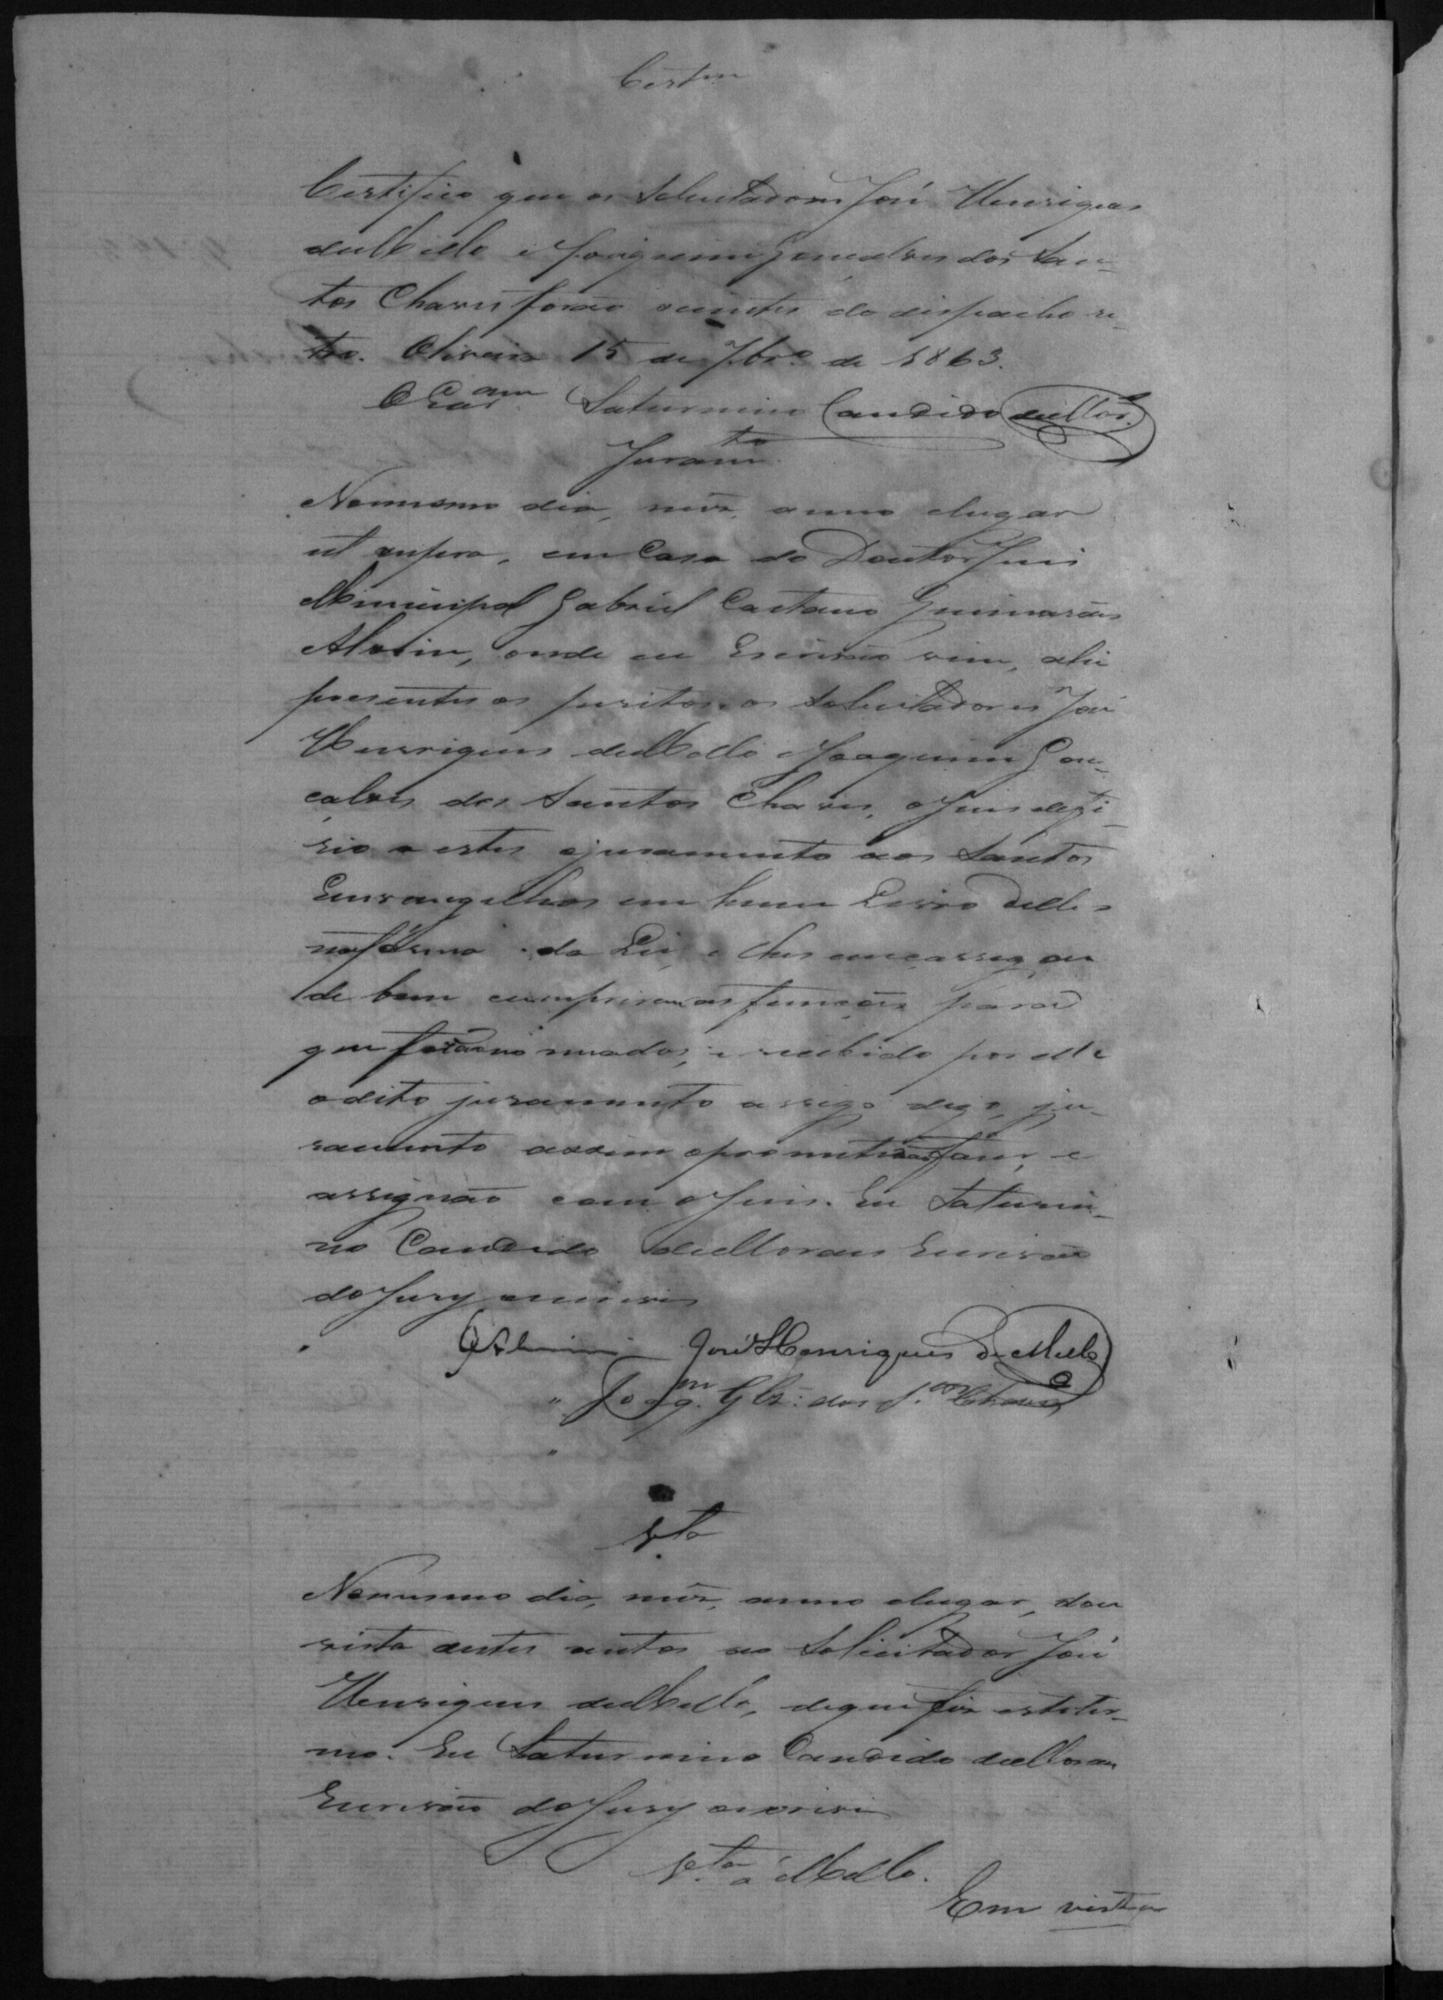 Certam
Certifico que os Solicitadores José Henriques
de Mello e Joaquim Gonçalves dos San-
tos Chaves forão scientes do despacho re-
tro. Oliveira 15 de 7br.o de 1863.
O Escram Saturnino Candido de Mor.s
Juramto
No mesmo dia, mes, anno e lugar
ut supra, em Casa do Doutor Juis
Municipal Gabriel Caetano Guimarães
Alvim, onde eu Escrivão vim, ahi
presentes os peritos, os Solicitadores José
Henriques de Mello e Joaquim Gon-
çalves dos Santos Chaves, o Juis defi-
rio a estes o juramento aos Santos
Euvangelhos em hum Livro delles
na forma da Lei, e lhes encarregou
de bem cumprirem as funções para
que forão nomeados; e recebido por elle
o dito juramento assigo digo, ju-
ramento assim o prometterão faser, e
assignão com o Juis. Eu Saturni-
no Candido de Moraes Escrivão
do Jury o escrevi
GAlvim José Henriques De Mello
Joaqm. Glz: dos S.tos Chaves
V.ta
No mesmo dia, mes, anno e lugar, dou
vista destes autos ao Solicitador José
Henriques de Mello, de que fis este ter-
mo. Eu Saturnino Candido de Moraes
Escrivão do Jury o escrevi
V.ta a Mello.
Em vista